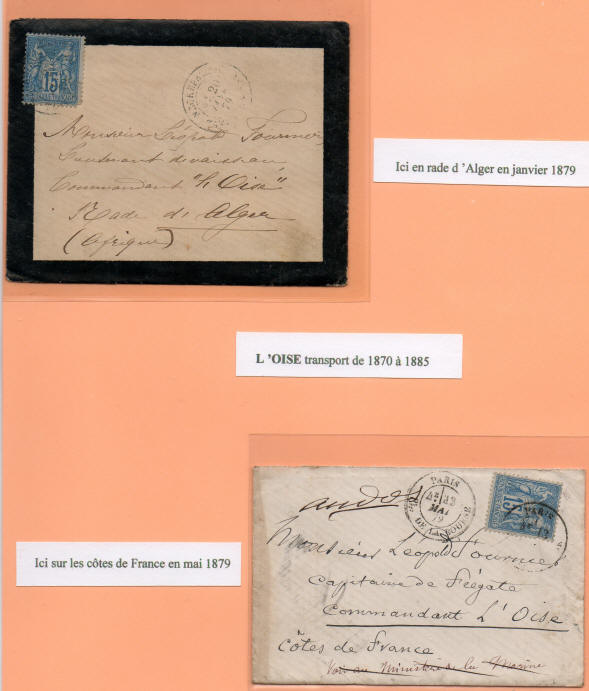 15
Monsieur Léopold Fournier
Lieutenant de vaisseau
Commandant "L'Oise"
Rade d'Alger
(Afrique)
Ici en rade d 'Alger en janvier 1879
L 'OISE transport de 1870 à 1885
Ici sur les côtes de France en mai 1879
PARIS
MAI
79
15
PARIS
Monsieur Léopold Fournier
Capitaine de Frégate
Commandant L'Oise
Côtes de France
Voir au Ministère de la Marine